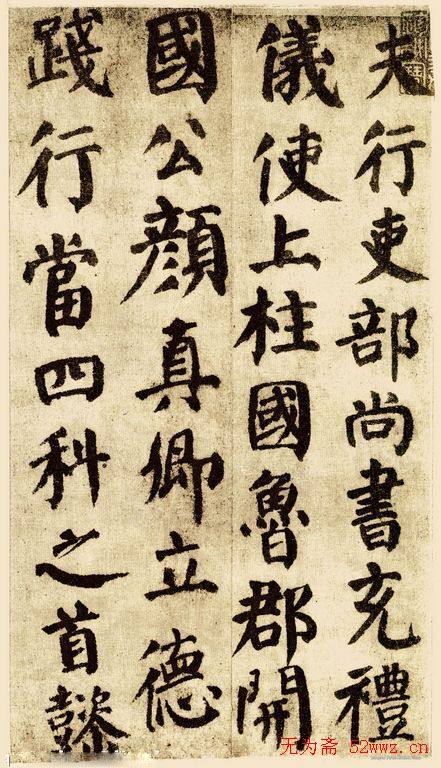 夫行吏部尚書充禮
儀使上柱國魯郡開
國公顏真卿立德
踐行當四科之首懿
无为斋 52wwz.cn